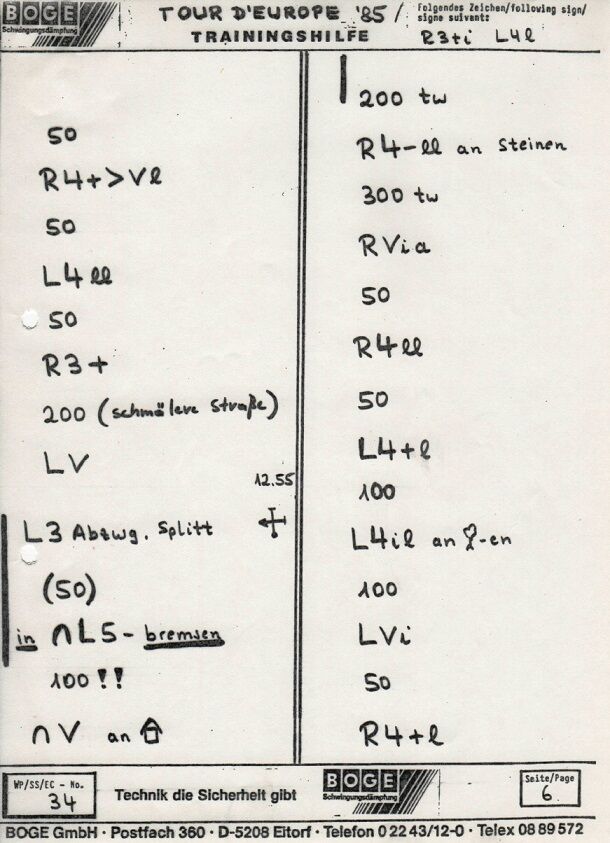 BOGE
Schwingungsdämpfung
TOUR D'EUROPE '85/
TRAININGSHILFE
Folgendes Zeichen/following sign/
signe suivant:
R3+i L4l
50
R4+>Vl
50
L4ll
50
R3+
200 (schmälere Straße)
LV
12.55
L3 Abzwg. Splitt
(50)
in ∩L5- bremsen
100!!
∩V an
200 tw
R4-ll an Steinen
300 tw
RVia
50
R4ll
50
L4+l
100
L4il an -en
100
LVi
50
R4+l
WP/SS/EC - No.
34
Technik die Sicherheit gibt
BOGE
Schwingungsdämpfung
Seite/Page
6
BOGE GmbH · Postfach 360 · D-5208 Eitorf · Telefon 0 22 43/12-0 · Telex 08 89 572